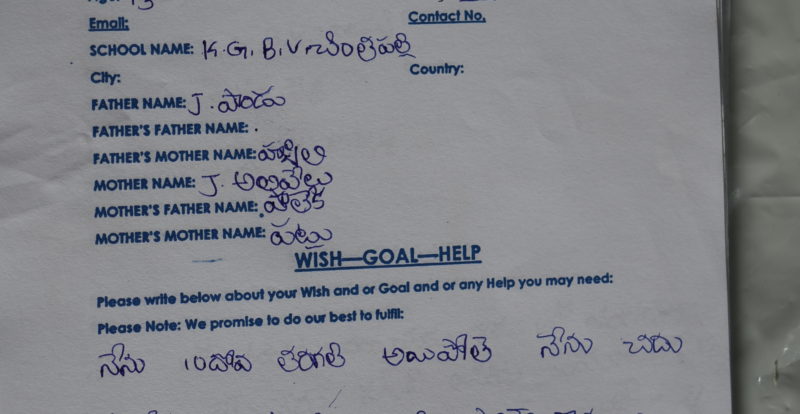 Email: Contact No.
SCHOOL NAME: K.G.B.V చింతపల్లి
City: Country:
FATHER NAME: J. పాండు
FATHER'S FATHER NAME: .
FATHER'S MOTHER NAME:
MOTHER NAME: J. అలివేలు
MOTHER'S FATHER NAME:
MOTHER'S MOTHER NAME:
WISH—GOAL—HELP
Please write below about your Wish and or Goal and or any Help you may need:
Please Note: We promise to do our best to fulfil:
నేను 10దోవ తరగతి అయిపోతే నేను చదు